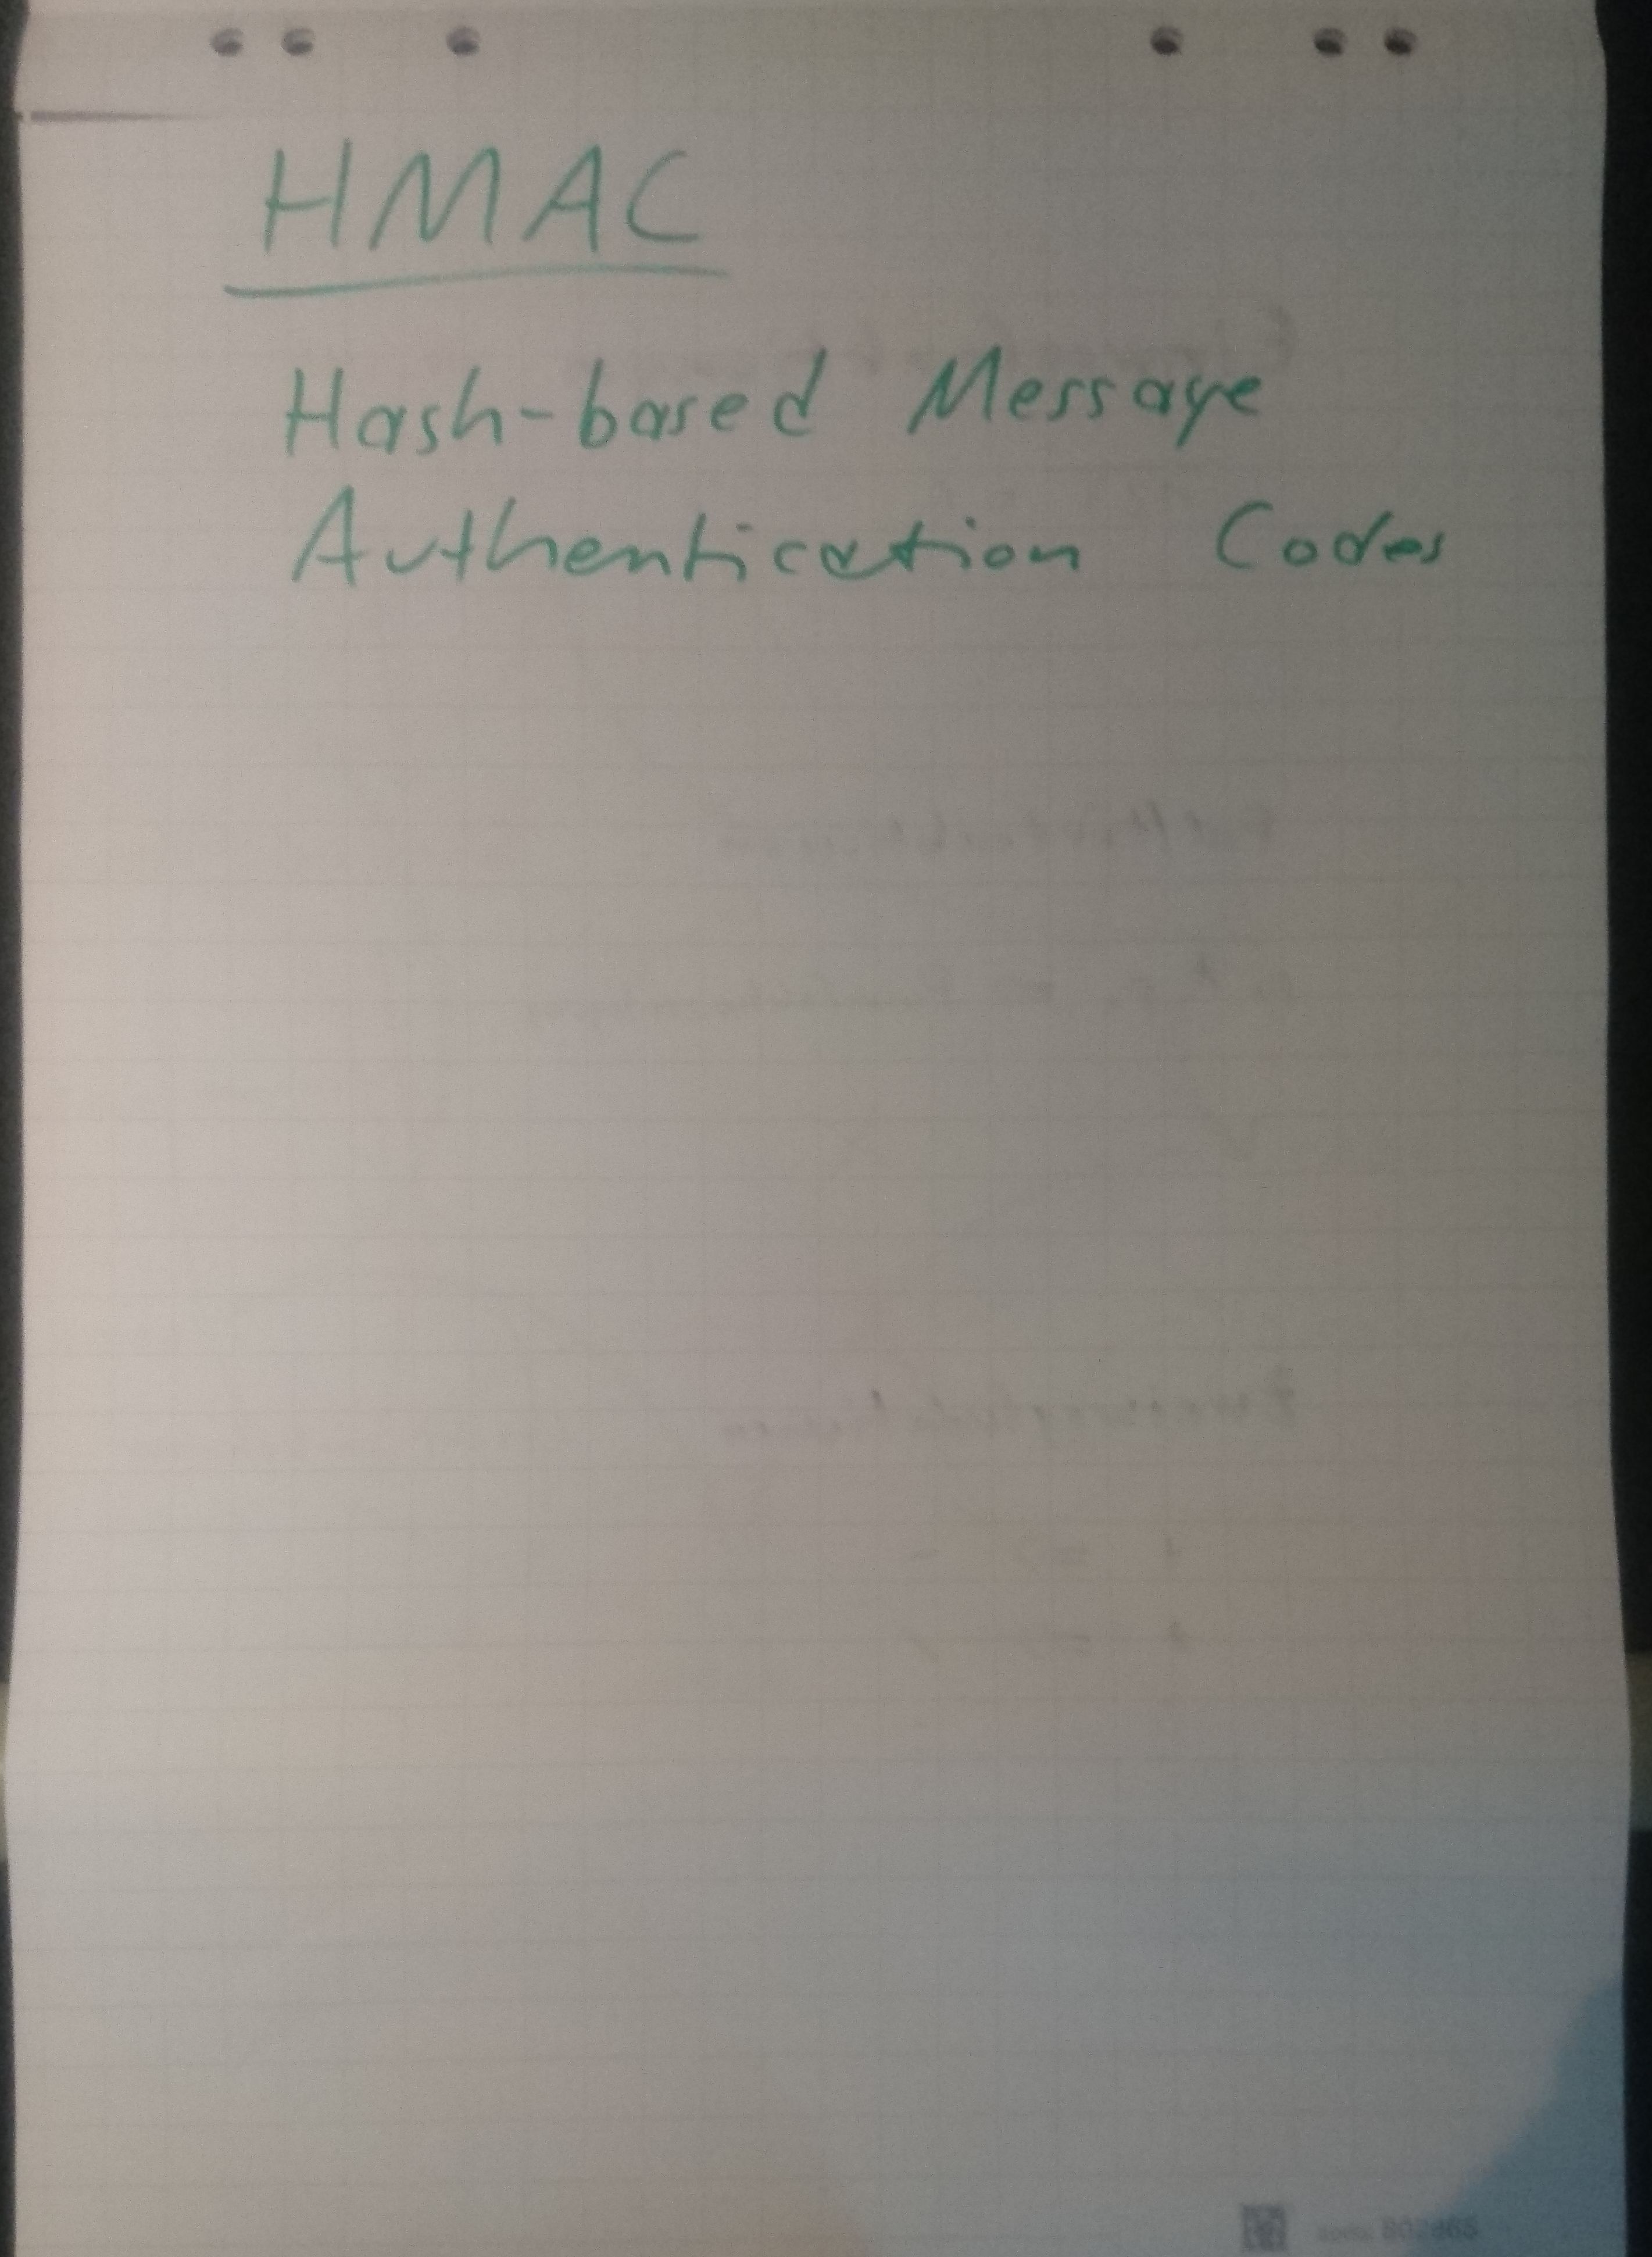 HMAC
Hash-based Message
Authentication Codes